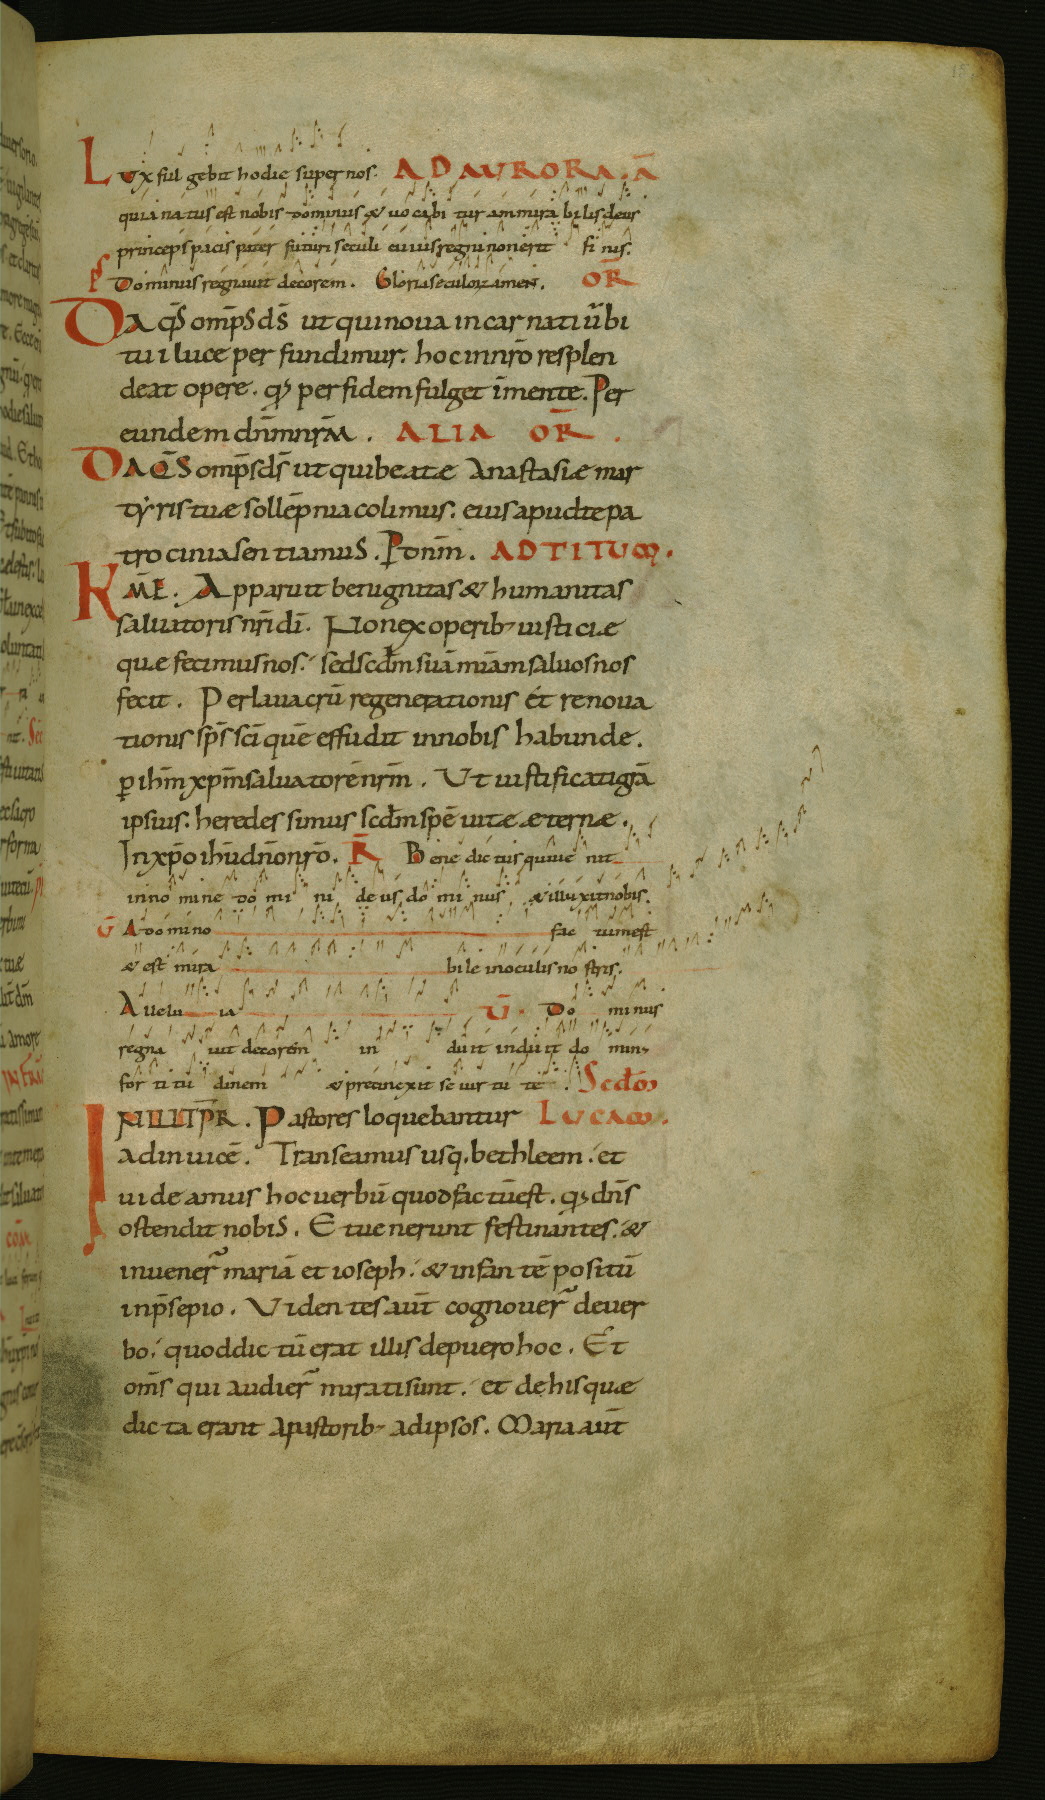 Lux fulgebit hodie super nos. AD AURORA. ā
quia natus est nobis dominus & uocabitur ammirabilis deus
princeps pacis pater futuri seculi cuius regni non erit finis.
ps Dominus regnauit decorem. Gloria seculorum amen. OR̄
DA q̄s omp̄s ds̄ ut qui noua incarnati ūbi
tui luce perfundimur. hoc in nr̄o resplen
deat opere. q̄d per fidem fulget in mente. Per
eundem dn̄m nr̄m. ALIA OR̄.
DA Q̄S omp̄s ds̄ ut qui beatae Anastasiae mar
tyris tuae sollēpnia colimus. eius apud te pa
trocinia sentiamus. P dnm̄. AD TITUM.
Km̄E. Apparuit benignitas & humanitas
saluatoris nr̄i dī. Non ex operib; iusticiae
quae fecimus nos. sed scdm̄ suā miām saluos nos
fecit. Per lauacrū regenerationis et renoua
tionis sp̄s sc̄i quē effudit in nobis habunde.
p ihm̄ xpm̄ saluatorē nr̄m. Ut iustificati grā
ipsius. heredes simus scdm̄ spē uitae aeternae.
In xp̄o ihū dn̄o nr̄o. R̄ Benedictus qui uenit
in nomine domini deus dominus & illuxit nobis.
V̄ A domino factum est
& est mirabile in oculis nostris.
Alleluia V̄. Dominus
regnauit decorem induit induit dominus
fortitudinem & precinxit se uirtute. Scdm̄
IN ILL T̄PR. Pastores loquebantur LUCAM.
adinuicē. Transeamus usq. bethleem. et
uideamus hoc uerbū quod factū est. q̄d dn̄s
ostendit nobis. Et uenerunt festinantes. &
inuener̄ mariā et ioseph. & infantē positū
in p̄sepio. Videntes aut̄ cognouer̄ de uer
bo. quod dictū erat illis de puero hoc. Et
om̄s qui audier̄ mirati sunt. et de his quae
dicta erant a pastorib; ad ipsos. Maria aut̄